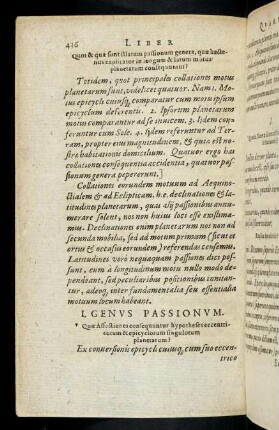 436 LIBER
Quæ & quot sunt istarum passionum genera, quæ hacte-
planetarum consequuntur?
Totidem, quot principales collationes motus
planetarum sunt, videlicet quatuor. Nam 1. Mo-
tus epicycli cuiusq; comparatur cum motu ipsum
epicyclum deferenti. 2. Ipsorum planetarum
motus comparantur ad se invicem. 3. Iidem con-
feruntur cum Sole. 4. Iidem referuntur ad Ter-
ram, propter eius magnitudinem, & quia est no-
stræ habitationis domicilium. Quatuor ergo hæ
collationes consequentia accidentia, quatuor pas-
sionum genera pepererunt.]
Collationes eorundem motuum ad Æquino-
ctialem & ad Eclipticam, h.e. declinationes & la-
titudines planetarum, quas alij passionibus annu-
merare solent, nos non huius loci esse existima-
mus. Declinationes enim planetarum nos non ad
secunda mobilia, sed ad motum primum (sicut et
ortus & occasus eorundem) referendas censemus.
Latitudines verò nequaquam passiones dici pos-
sunt, cum a longitudinum motu nullo modo de-
pendeant, sed peculiaribus positionibus innitan-
tur, adeoq; inter fundamentalia seu essentialia
motuum locum habeant.
I. GENUS PASSIONUM.
Quæ Affectiones consequuntur hypotheses eccentri-
corum & epicyclorum singulorum
planetarum?
Ex conversionis epicycli cuiusq; cum suo eccen-
trico